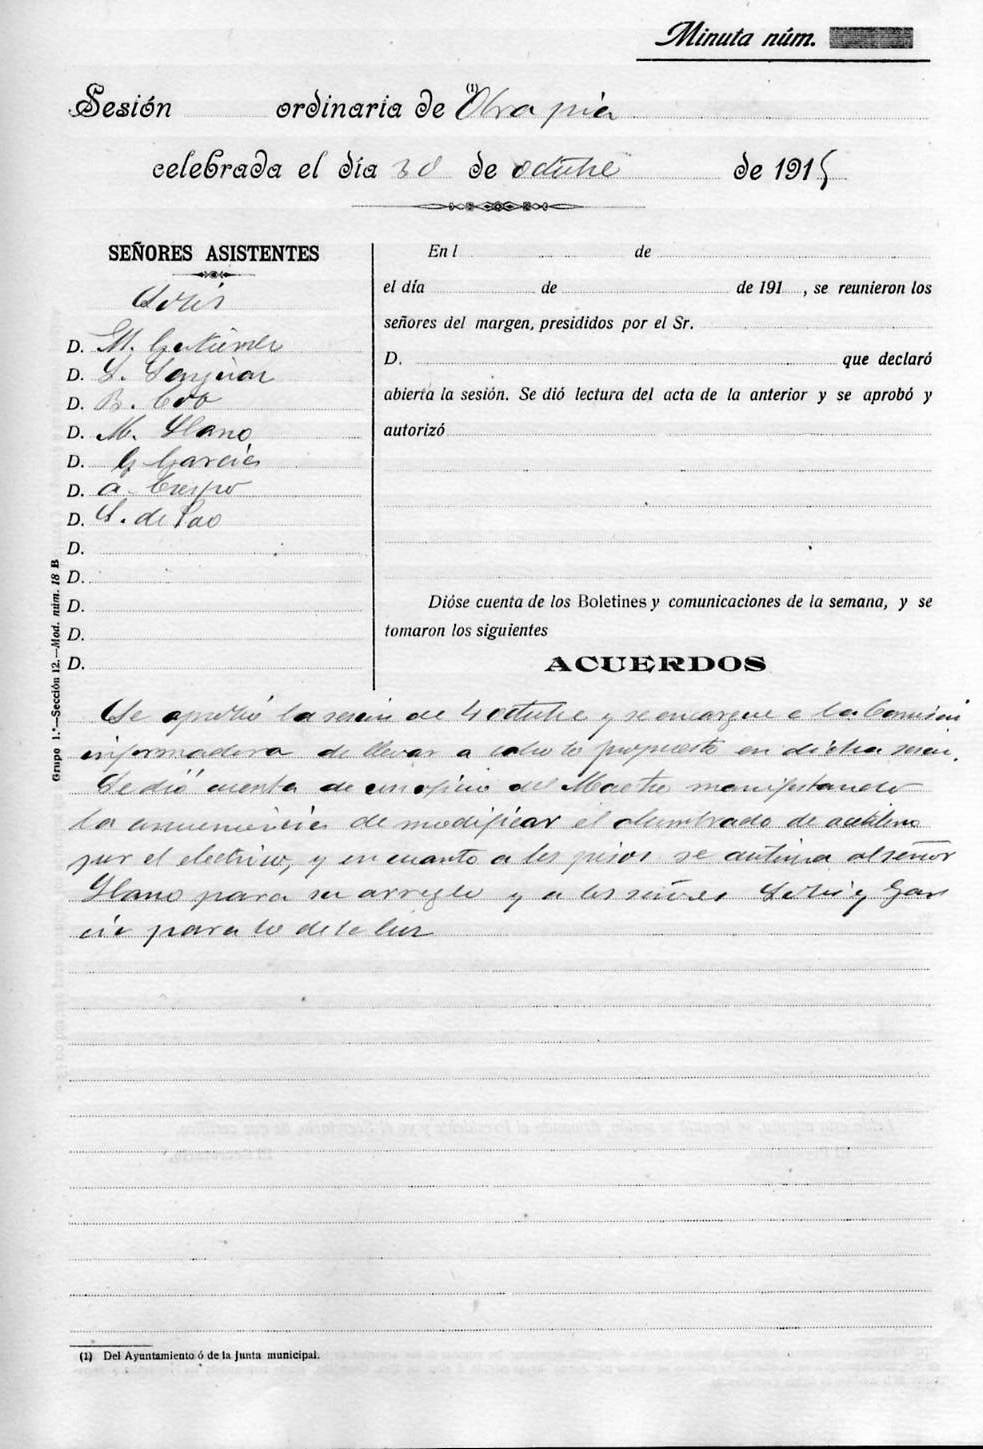 Minuta núm.
Sesión ordinaria de (1) Obra pía
celebrada el día 30 de octubre de 1915
SEÑORES ASISTENTES
Solís
D. M. Gutiérrez
D. S.
D. B. Cobo
D. M. Llano
D. G García
D. A. Crespo
D. S. de Pao
D.
D.
D.
D.
D.
En l de
el día de de 191 , se reunieron los
señores del margen, presididos por el Sr.
D. que declaró
abierta la sesión. Se dió lectura del acta de la anterior y se aprobó y
autorizó
Dióse cuenta de los Boletines y comunicaciones de la semana, y se
tomaron los siguientes
ACUERDOS
Se aprobó la sesión de 4 octubre y se encargue a la Comisión
informadora de llevar a cabo lo propuesto en dicha sesión.
Se dió cuenta de un oficio del Maestro manifestando
la conveniencia de modificar el alumbrado de acetileno
por el electrico, y en cuanto a los pisos se autoriza al señor
Llano para su arreglo y a los señores Solís y Gar
cía para lo de la luz
Grupo 1.º—Sección 12.—Mod. núm. 18 B
(1) Del Ayuntamiento ó de la Junta municipal.